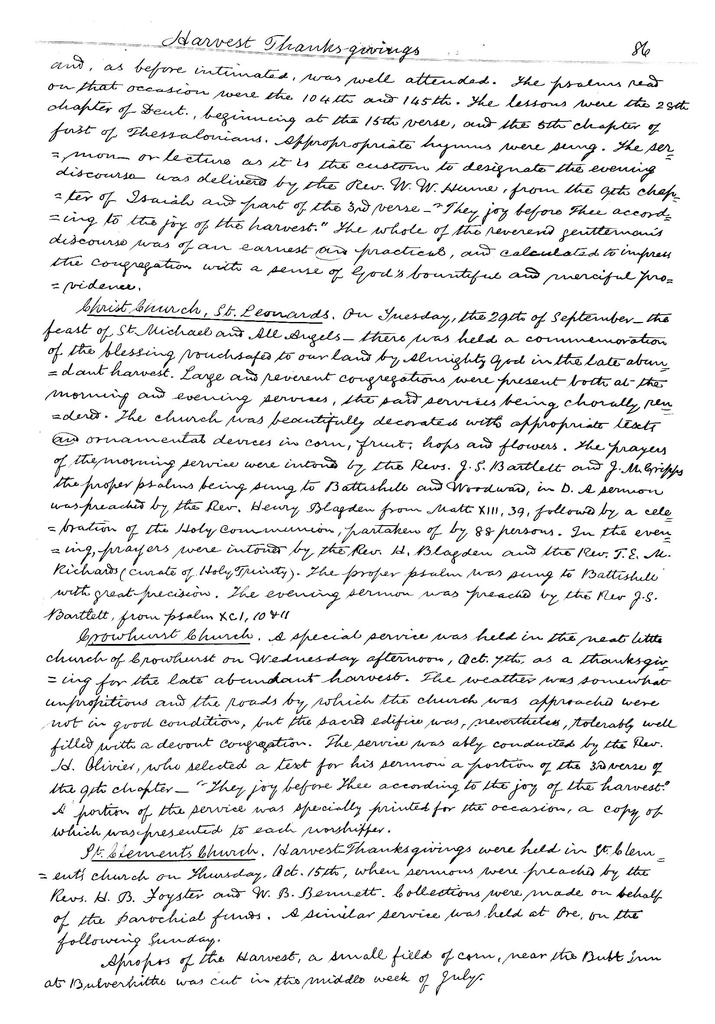 Harvest Thanks-givings 86
and, as before intimated, was well attended. The psalms read
on that occasion were the 104th and 145th. The lessons were the 28th
chapter of Deut., beginning at the 15th verse, and the 5th chapter of
first of Thessalonians. Appropropriate hymns were sung. The ser=
=mon — or lecture as it is the custom to designate the evening
discourse — was delivered by the Rev. W. W. Hume, from the 9th chap=
=ter of Isaiah and part of the 3rd verse — "They joy before Thee accord=
=ing to the joy of the harvest." The whole of the reverend gentleman's
discourse was of an earnest and practical, and calculated to impress
the congregation with a sense of God's bountiful and merciful pro=
=vidence.
Christ Church, St. Leonards. On Tuesday, the 29th of September — the
feast of St Michael and All Angels — there was held a commemoration
of the blessing vouchsafed to our land by Almighty God in the late abun=
=dant harvest. Large and reverent congregations were present both at the
morning and evening services, the said services being chorally ren=
=derd. The church was beautifully decorated with appropriate texts
and ornamental devices in corn, fruit, hops and flowers. The prayers
of the morning service were intoned by the Revs. J. S. Bartlett and J. M. Gripps
the proper psalms being sung to Battishill and Woodward, in D. A sermon
was preached by the Rev. Henry Blagden from Matt XIII, 39, followed by a cele=
=bration of the Holy Communion, partaken of by 88 persons. In the even=
=ing, prayers were intoned by the Rev. H. Blagden and the Rev. T. E. M.
Richards (curate of Holy Trinity). The proper psalm was sung to Battishill
with great precision. The evening sermon was preached by the Rev J. S.
Bartlett, from psalm XCI, 10 & 11
Crowhurst Church. A special service was held in the neat little
church of Crowhurst on Wednesday afternoon, Oct. 7th, as a thanksgiv=
=ing for the late abundant harvest. The weather was somewhat
unpropitious and the roads by which the church was approached were
not in good condition, but the sacred edifice was, nevertheless, tolerably well
filled with a devout congregation. The service was ably conducted by the Rev.
H. Olivier, who selected a text for his sermon a portion of the 3rd verse of
the 9th chapter — "They joy before Thee according to the joy of the harvest."
A portion of the service was specially printed for the occasion, a copy of
which was presented to each worshipper.
St. Clement's Church. Harvest-Thanksgivings were held in St Clem=
=ent's church on Thursday, Oct. 15th, when sermons were preached by the
Revs. H. B. Foyster and W. B. Bennett. Collections were made on behalf
of the Parochial funds. A similar service was held at Ore, on the
following Sunday.
Apropos of the Harvest, a small field of corn, near the Bull Inn
at Bulverhithe was cut in the middle week of July.